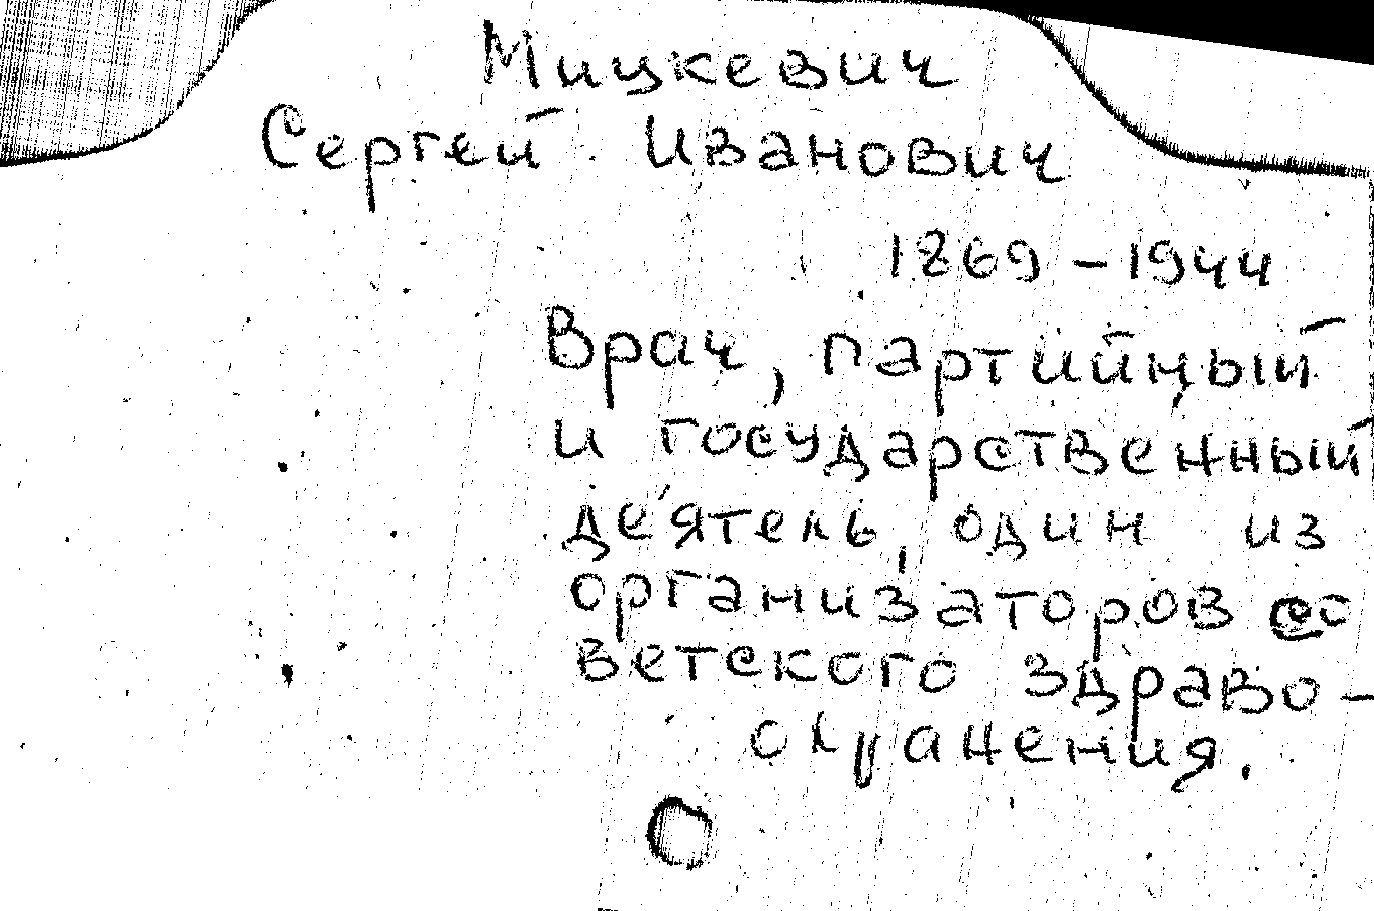 Мицкевич
Сергей Иванович
1869 - 1944
Врач, партийный
и государственный
деятель, один из
организаторов со
ветского здраво-
охранения.